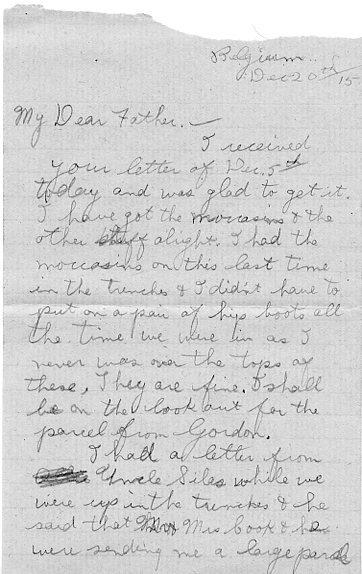 Belgium.
Dec 20th/15
My Dear Father. —
I received
your letter of Dec. 5th
today and was glad to get it.
I have got the moccasins & the
other stuff alright. I had the
moccasins on this last time
in the trenches & I didn't have to
put on a pair of hip boots all
the time we were in as I
never was over the tops of
these, They are fine. I shall
be on the look out for the
parcel from Gordon.
I had a letter from
Uncle Silas while we
were up in the trenches & he
said that Mrs Cook & he
were sending me a large parcel